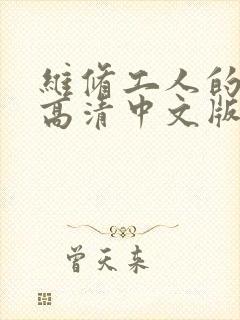 維修工人的
高清中文版
曾天来